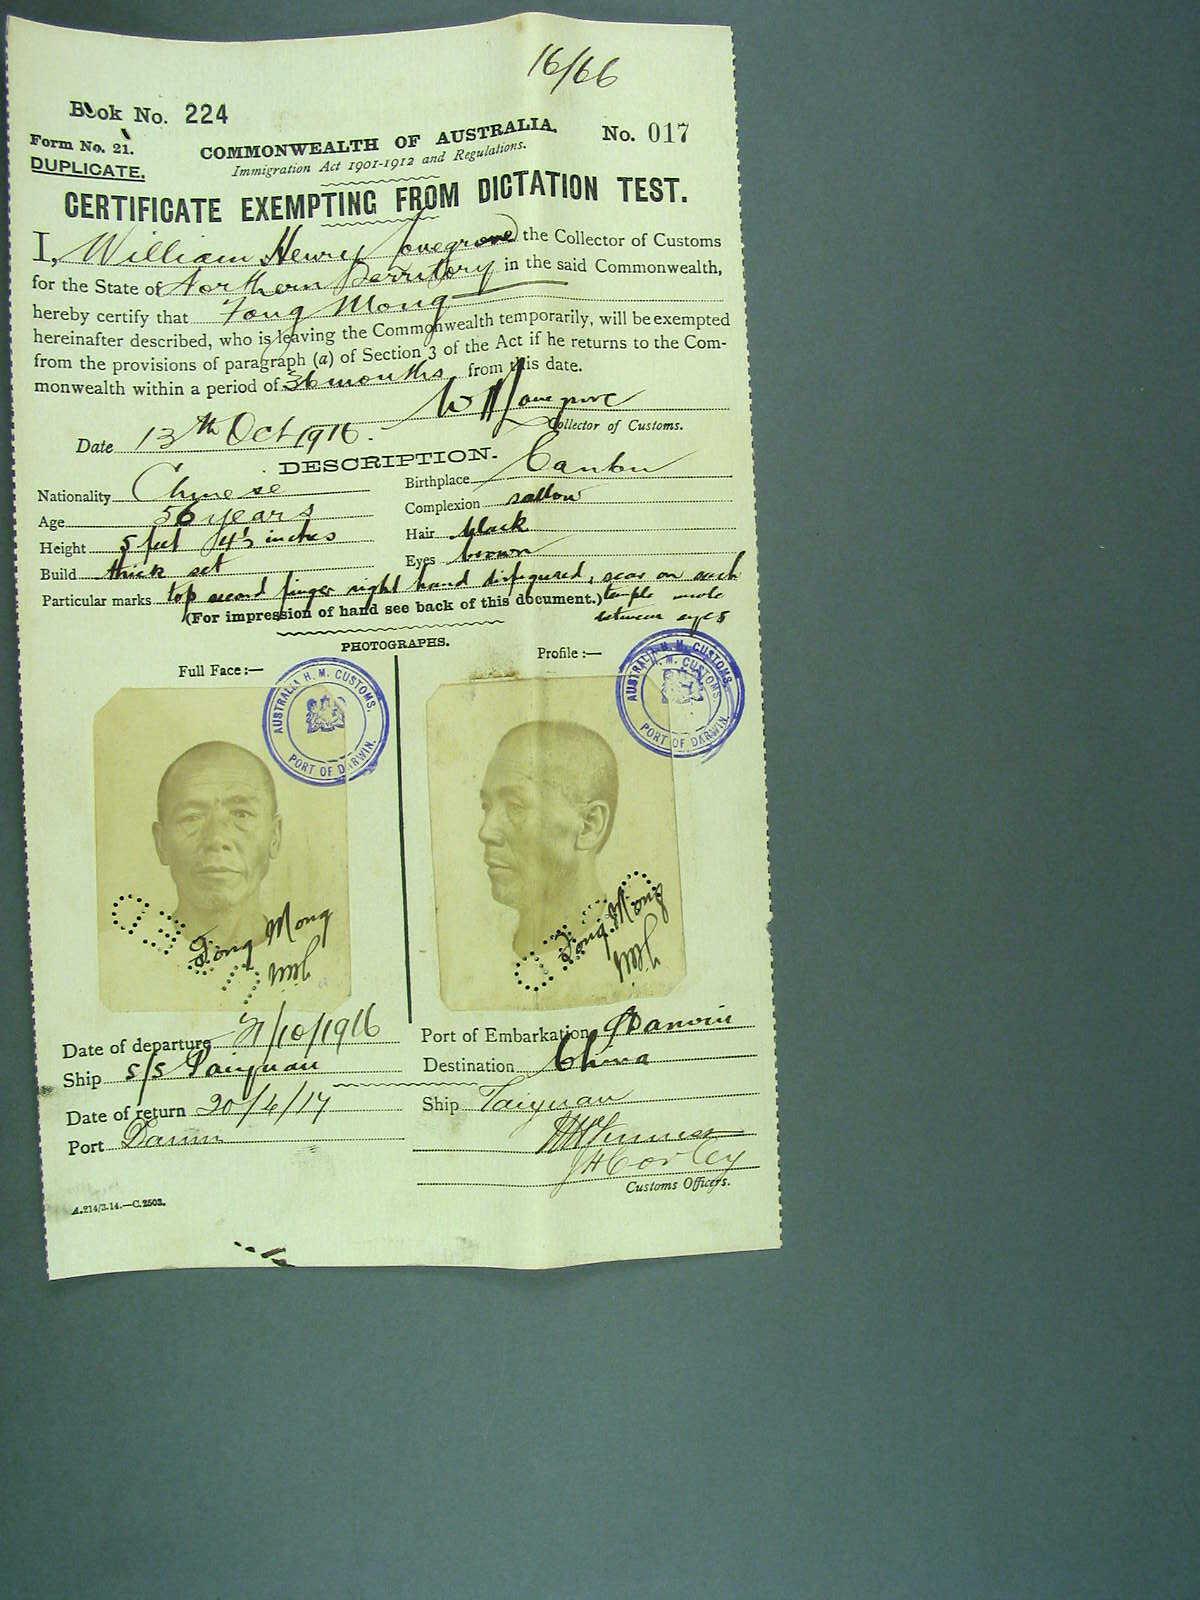 16/66
Book No. 224
Form No. 21.
COMMONWEALTH OF AUSTRALIA.
No. 017
DUPLICATE.
Immigration Act 1901-1912 and Regulations.
CERTIFICATE EXEMPTING FROM DICTATION TEST.
I, William Henry Lovegrove the Collector of Customs
for the State of Northern Territory in the said Commonwealth,
hereby certify that Fong Mong
hereinafter described, who is leaving the Commonwealth temporarily, will be exempted
from the provisions of paragraph (a) of Section 3 of the Act if he returns to the Com-
monwealth within a period of 36 months from this date.
W H Lovegrove
Date 13th Oct 1916.
Collector of Customs.
DESCRIPTION.
Nationality Chinese
Birthplace Canton
Age 56 years
Complexion sallow
Height 5 feet 4½ inches
Hair black
Build thick set
Eyes brown
Particular marks top second finger right hand disfigured, scar on each
(For impression of hand see back of this document.) temple mole
between eyes
PHOTOGRAPHS.
Full Face:—
Profile:—
AUSTRALIA H. M. CUSTOMS.
PORT OF DARWIN.
AUSTRALIA H. M. CUSTOMS.
PORT OF DARWIN.
Fong Mong
Fong Mong
Date of departure 21/10/1916
Port of Embarkation Darwin
Ship S/S Taiyuan
Destination China
Date of return 20/4/17
Ship Taiyuan
Port Darwin
Customs Officers.
A.214/3.14.—C.2503.